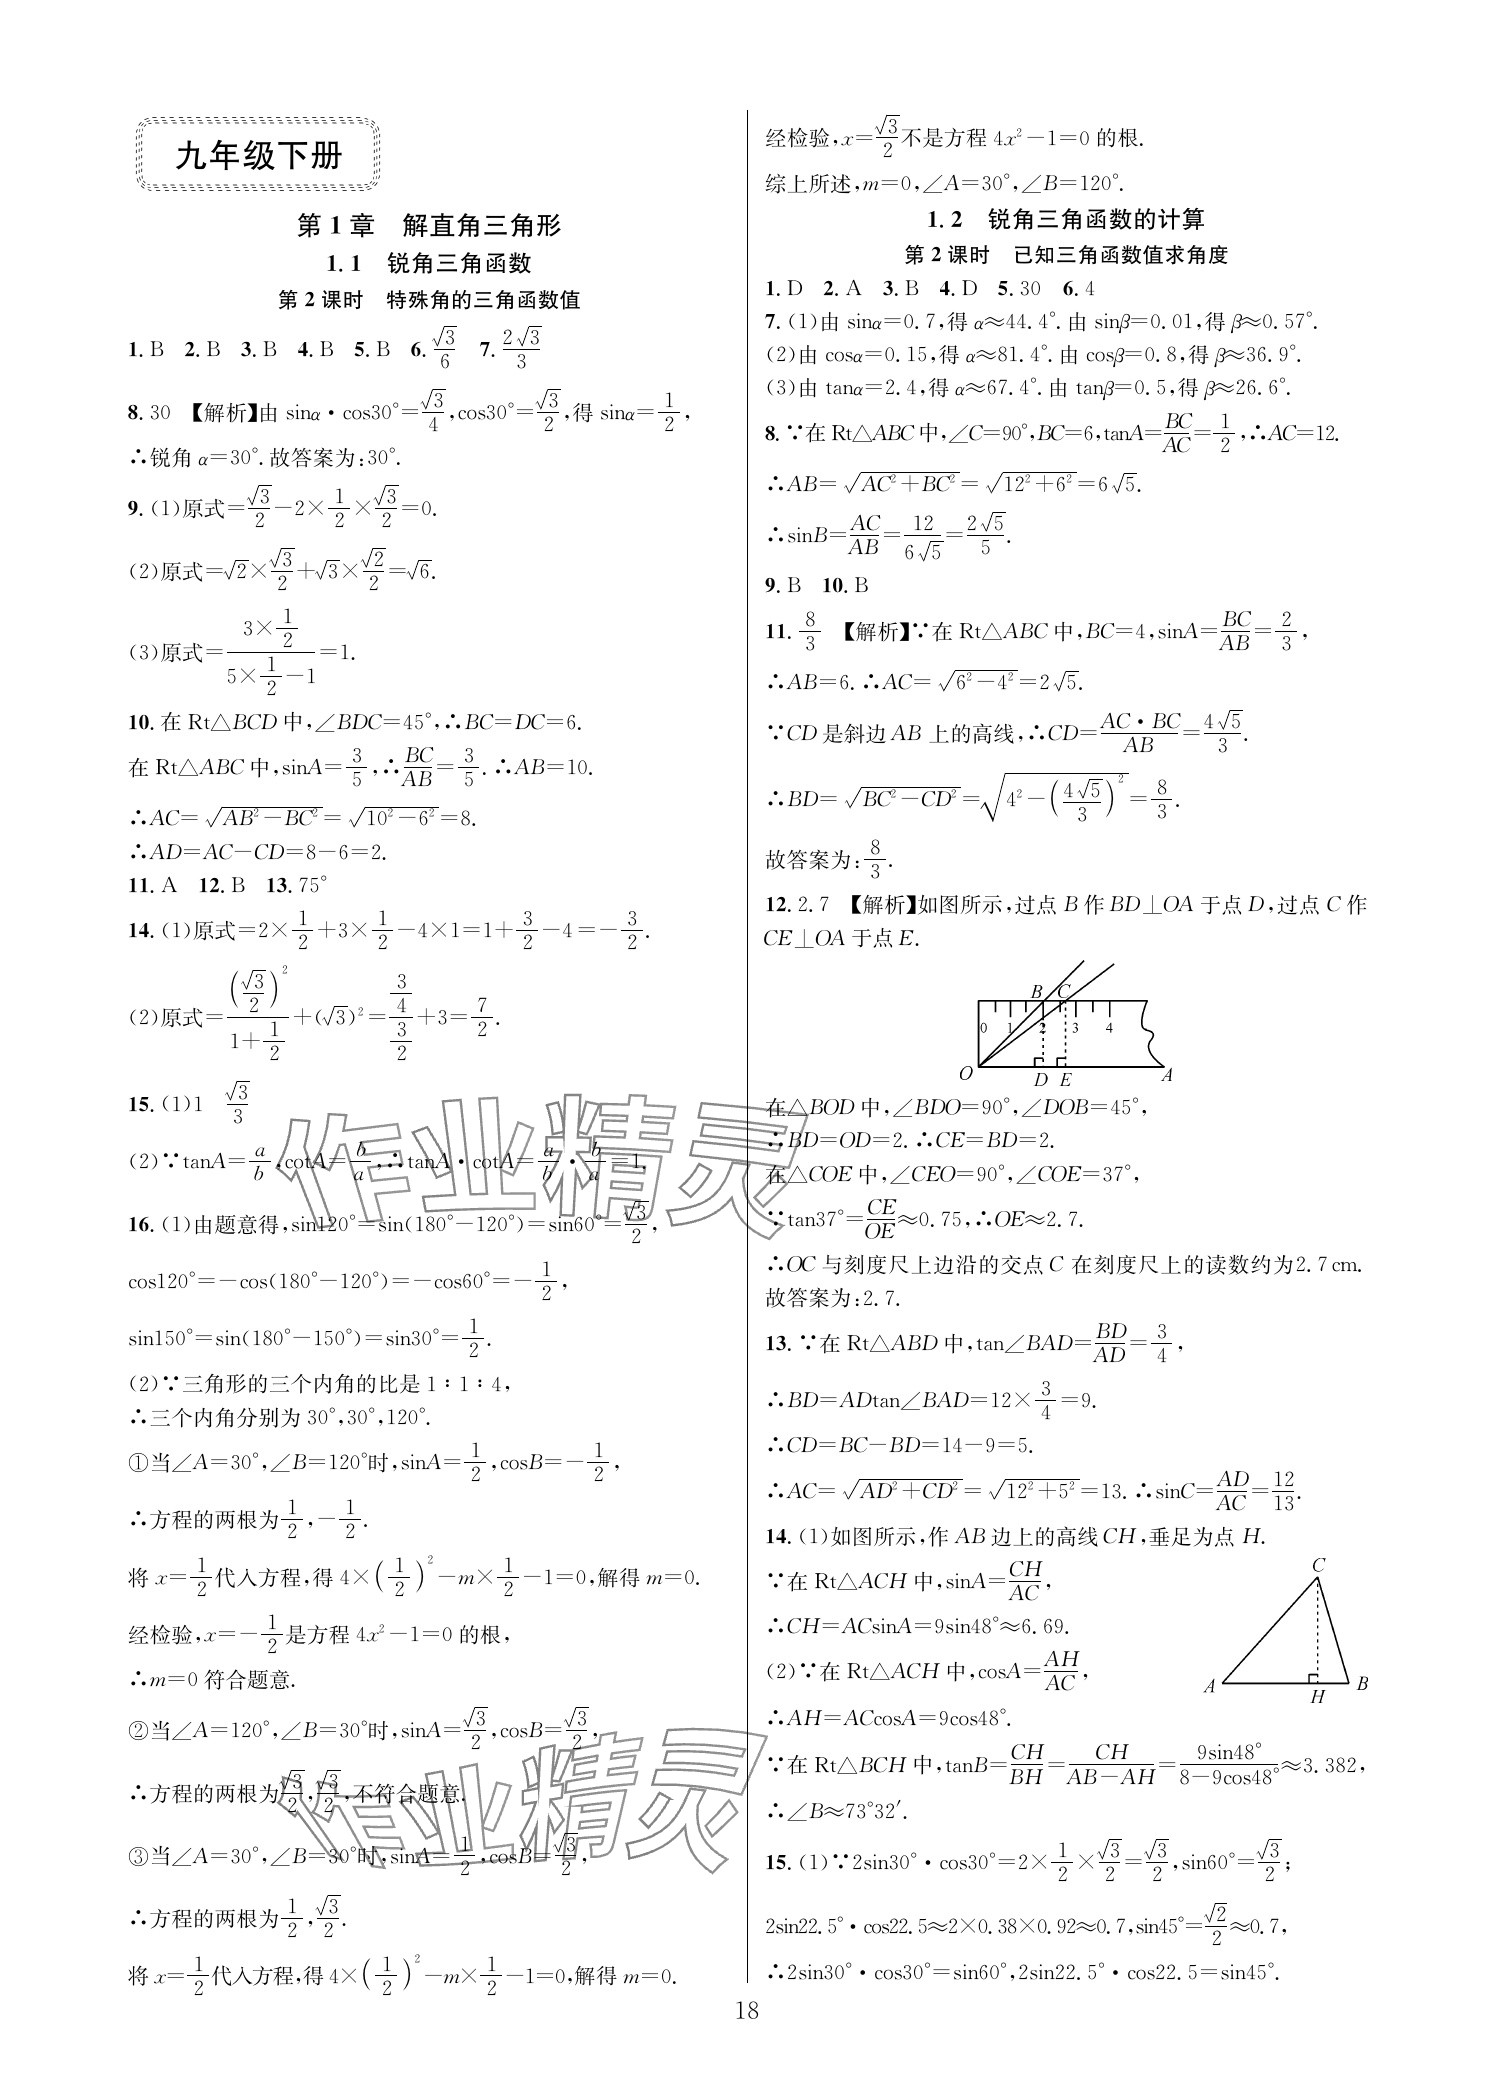 九年级下册
第1章　解直角三角形
1.1　锐角三角函数
第2课时　特殊角的三角函数值
1. B　2. B　3. B　4. B　5. B　6. √3/6　7. 2√3/3
8. 30　【解析】由 sinα·cos30°=√3/4,cos30°=√3/2,得 sinα=1/2,
∴锐角 α=30°.故答案为:30°.
9. (1)原式=√3/2-2×1/2×√3/2=0.
(2)原式=√2×√3/2+√3×√2/2=√6.
(3)原式=(3×1/2)/(5×1/2-1)=1.
10. 在 Rt△BCD 中,∠BDC=45°,∴BC=DC=6.
在 Rt△ABC 中,sinA=3/5,∴BC/AB=3/5.∴AB=10.
∴AC=√(AB²-BC²)=√(10²-6²)=8.
∴AD=AC-CD=8-6=2.
11. A　12. B　13. 75°
14. (1)原式=2×1/2+3×1/2-4×1=1+3/2-4=-3/2.
(2)原式=(√3/2)²/(1+1/2)+(√3)²=(3/4)/(3/2)+3=7/2.
15. (1)1　√3/3
(2)∵tanA=a/b,cotA=b/a,∴tanA·cotA=a/b·b/a=1.
16. (1)由题意得,sin120°=sin(180°-120°)=sin60°=√3/2,
cos120°=-cos(180°-120°)=-cos60°=-1/2,
sin150°=sin(180°-150°)=sin30°=1/2.
(2)∵三角形的三个内角的比是 1∶1∶4,
∴三个内角分别为 30°,30°,120°.
①当∠A=30°,∠B=120°时,sinA=1/2,cosB=-1/2,
∴方程的两根为1/2,-1/2.
将 x=1/2代入方程,得 4×(1/2)²-m×1/2-1=0,解得 m=0.
经检验,x=-1/2是方程 4x²-1=0 的根,
∴m=0 符合题意.
②当∠A=120°,∠B=30°时,sinA=√3/2,cosB=√3/2,
∴方程的两根为√3/2,√3/2,不符合题意.
③当∠A=30°,∠B=30°时,sinA=1/2,cosB=√3/2,
∴方程的两根为1/2,√3/2.
将 x=1/2代入方程,得 4×(1/2)²-m×1/2-1=0,解得 m=0.
经检验,x=√3/2不是方程 4x²-1=0 的根.
综上所述,m=0,∠A=30°,∠B=120°.
1.2　锐角三角函数的计算
第2课时　已知三角函数值求角度
1. D　2. A　3. B　4. D　5. 30　6. 4
7. (1)由 sinα=0.7,得 α≈44.4°.由 sinβ=0.01,得 β≈0.57°.
(2)由 cosα=0.15,得 α≈81.4°.由 cosβ=0.8,得 β≈36.9°.
(3)由 tanα=2.4,得 α≈67.4°.由 tanβ=0.5,得 β≈26.6°.
8. ∵在 Rt△ABC 中,∠C=90°,BC=6,tanA=BC/AC=1/2,∴AC=12.
∴AB=√(AC²+BC²)=√(12²+6²)=6√5.
∴sinB=AC/AB=12/(6√5)=2√5/5.
9. B　10. B
11. 8/3　【解析】∵在 Rt△ABC 中,BC=4,sinA=BC/AB=2/3,
∴AB=6.∴AC=√(6²-4²)=2√5.
∵CD 是斜边 AB 上的高线,∴CD=AC·BC/AB=4√5/3.
∴BD=√(BC²-CD²)=√(4²-(4√5/3)²)=8/3.
故答案为:8/3.
12. 2.7　【解析】如图所示,过点 B 作 BD⊥OA 于点 D,过点 C 作
CE⊥OA 于点 E.
B C
0 1 2 3 4
O D E A
在△BOD 中,∠BDO=90°,∠DOB=45°,
∴BD=OD=2.∴CE=BD=2.
在△COE 中,∠CEO=90°,∠COE=37°,
∵tan37°=CE/OE≈0.75,∴OE≈2.7.
∴OC 与刻度尺上边沿的交点 C 在刻度尺上的读数约为2.7 cm.
故答案为:2.7.
13. ∵在 Rt△ABD 中,tan∠BAD=BD/AD=3/4,
∴BD=ADtan∠BAD=12×3/4=9.
∴CD=BC-BD=14-9=5.
∴AC=√(AD²+CD²)=√(12²+5²)=13.∴sinC=AD/AC=12/13.
14. (1)如图所示,作 AB 边上的高线 CH,垂足为点 H.
∵在 Rt△ACH 中,sinA=CH/AC,
∴CH=ACsinA=9sin48°≈6.69.
(2)∵在 Rt△ACH 中,cosA=AH/AC,
∴AH=ACcosA=9cos48°.
C
A H B
∵在 Rt△BCH 中,tanB=CH/BH=CH/(AB-AH)=9sin48°/(8-9cos48°)≈3.382,
∴∠B≈73°32′.
15. (1)∵2sin30°·cos30°=2×1/2×√3/2=√3/2,sin60°=√3/2;
2sin22.5°·cos22.5≈2×0.38×0.92≈0.7,sin45°=√2/2≈0.7,
∴2sin30°·cos30°=sin60°,2sin22.5°·cos22.5=sin45°.
18
作业精灵
作业精灵